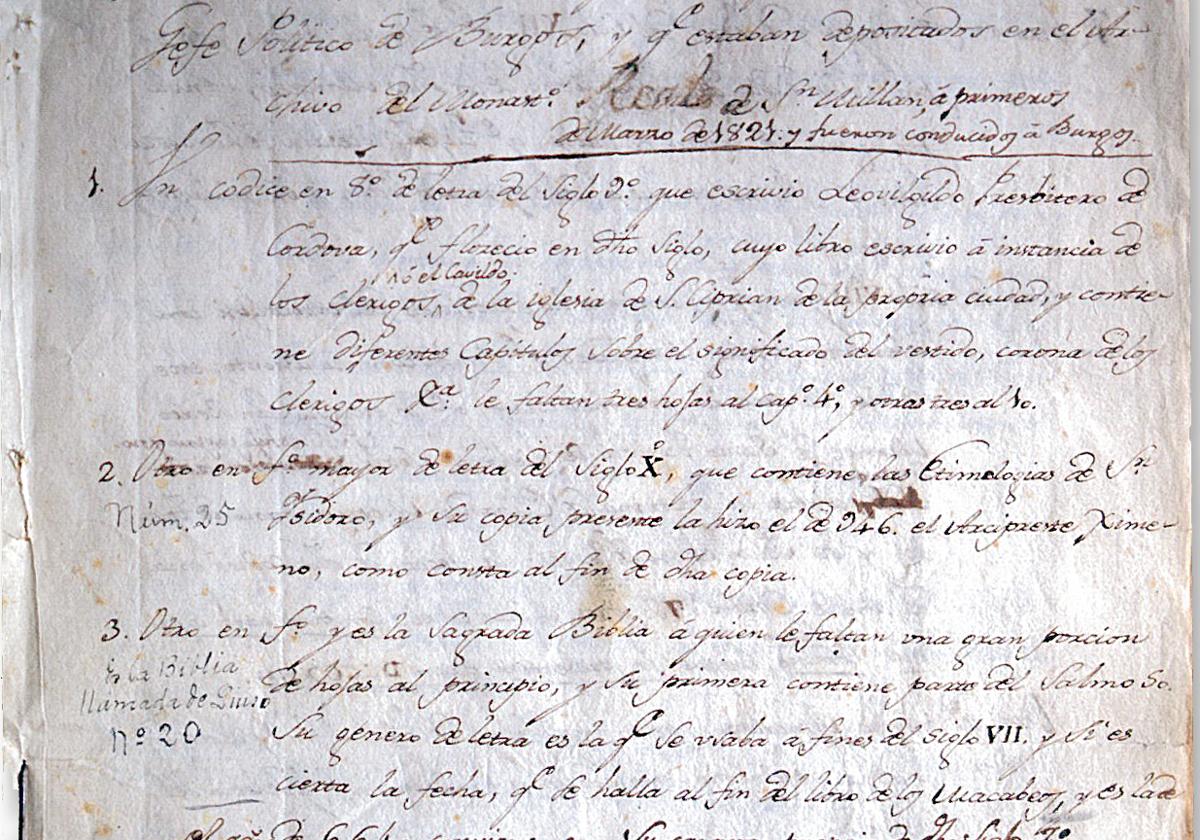 Gefe Politico de Burgos, y q.e estaban depositados en el Ar-
chivo del Monast.o Real de S.n Millan, á primeros
de Marzo de 1821. y fueron conducidos á Burgos.
1. Un codice en 8.o de letra del Siglo 9.o que escrivio Leovigildo Presbitero de
Cordova, q.e florecio en dho siglo, cuyo libro escrivio á instancia de
ó el Cavildo
los clerigos, de la iglesia de S. Ciprian de la propria ciudad, y contie-
ne diferentes Capitulos sobre el significado del vestido, corona de los
clerigos &.a le faltan tres hojas al cap.o 4.o, y otras tres al 10.
2. Otro en f.o mayor de letra del Siglo X.o, que contiene las Etimologias de S.n
Núm. 25
Isidoro, y su copia presente la hizo el de 946. el Arcipreste Xime-
no, como consta al fin de dha copia.
3. Otro en f.o y es la Sagrada Biblia á quien le faltan una gran porcion
Es la Biblia
llamada de Quiso
nº 20
de hojas al principio, y su primera contiene parte del Salmo 50.
Su genero de letra es la q.e se usaba á fines del siglo VII. y si es
cierta la fecha, q.e se halla al fin del libro de los Macabeos, y es la de